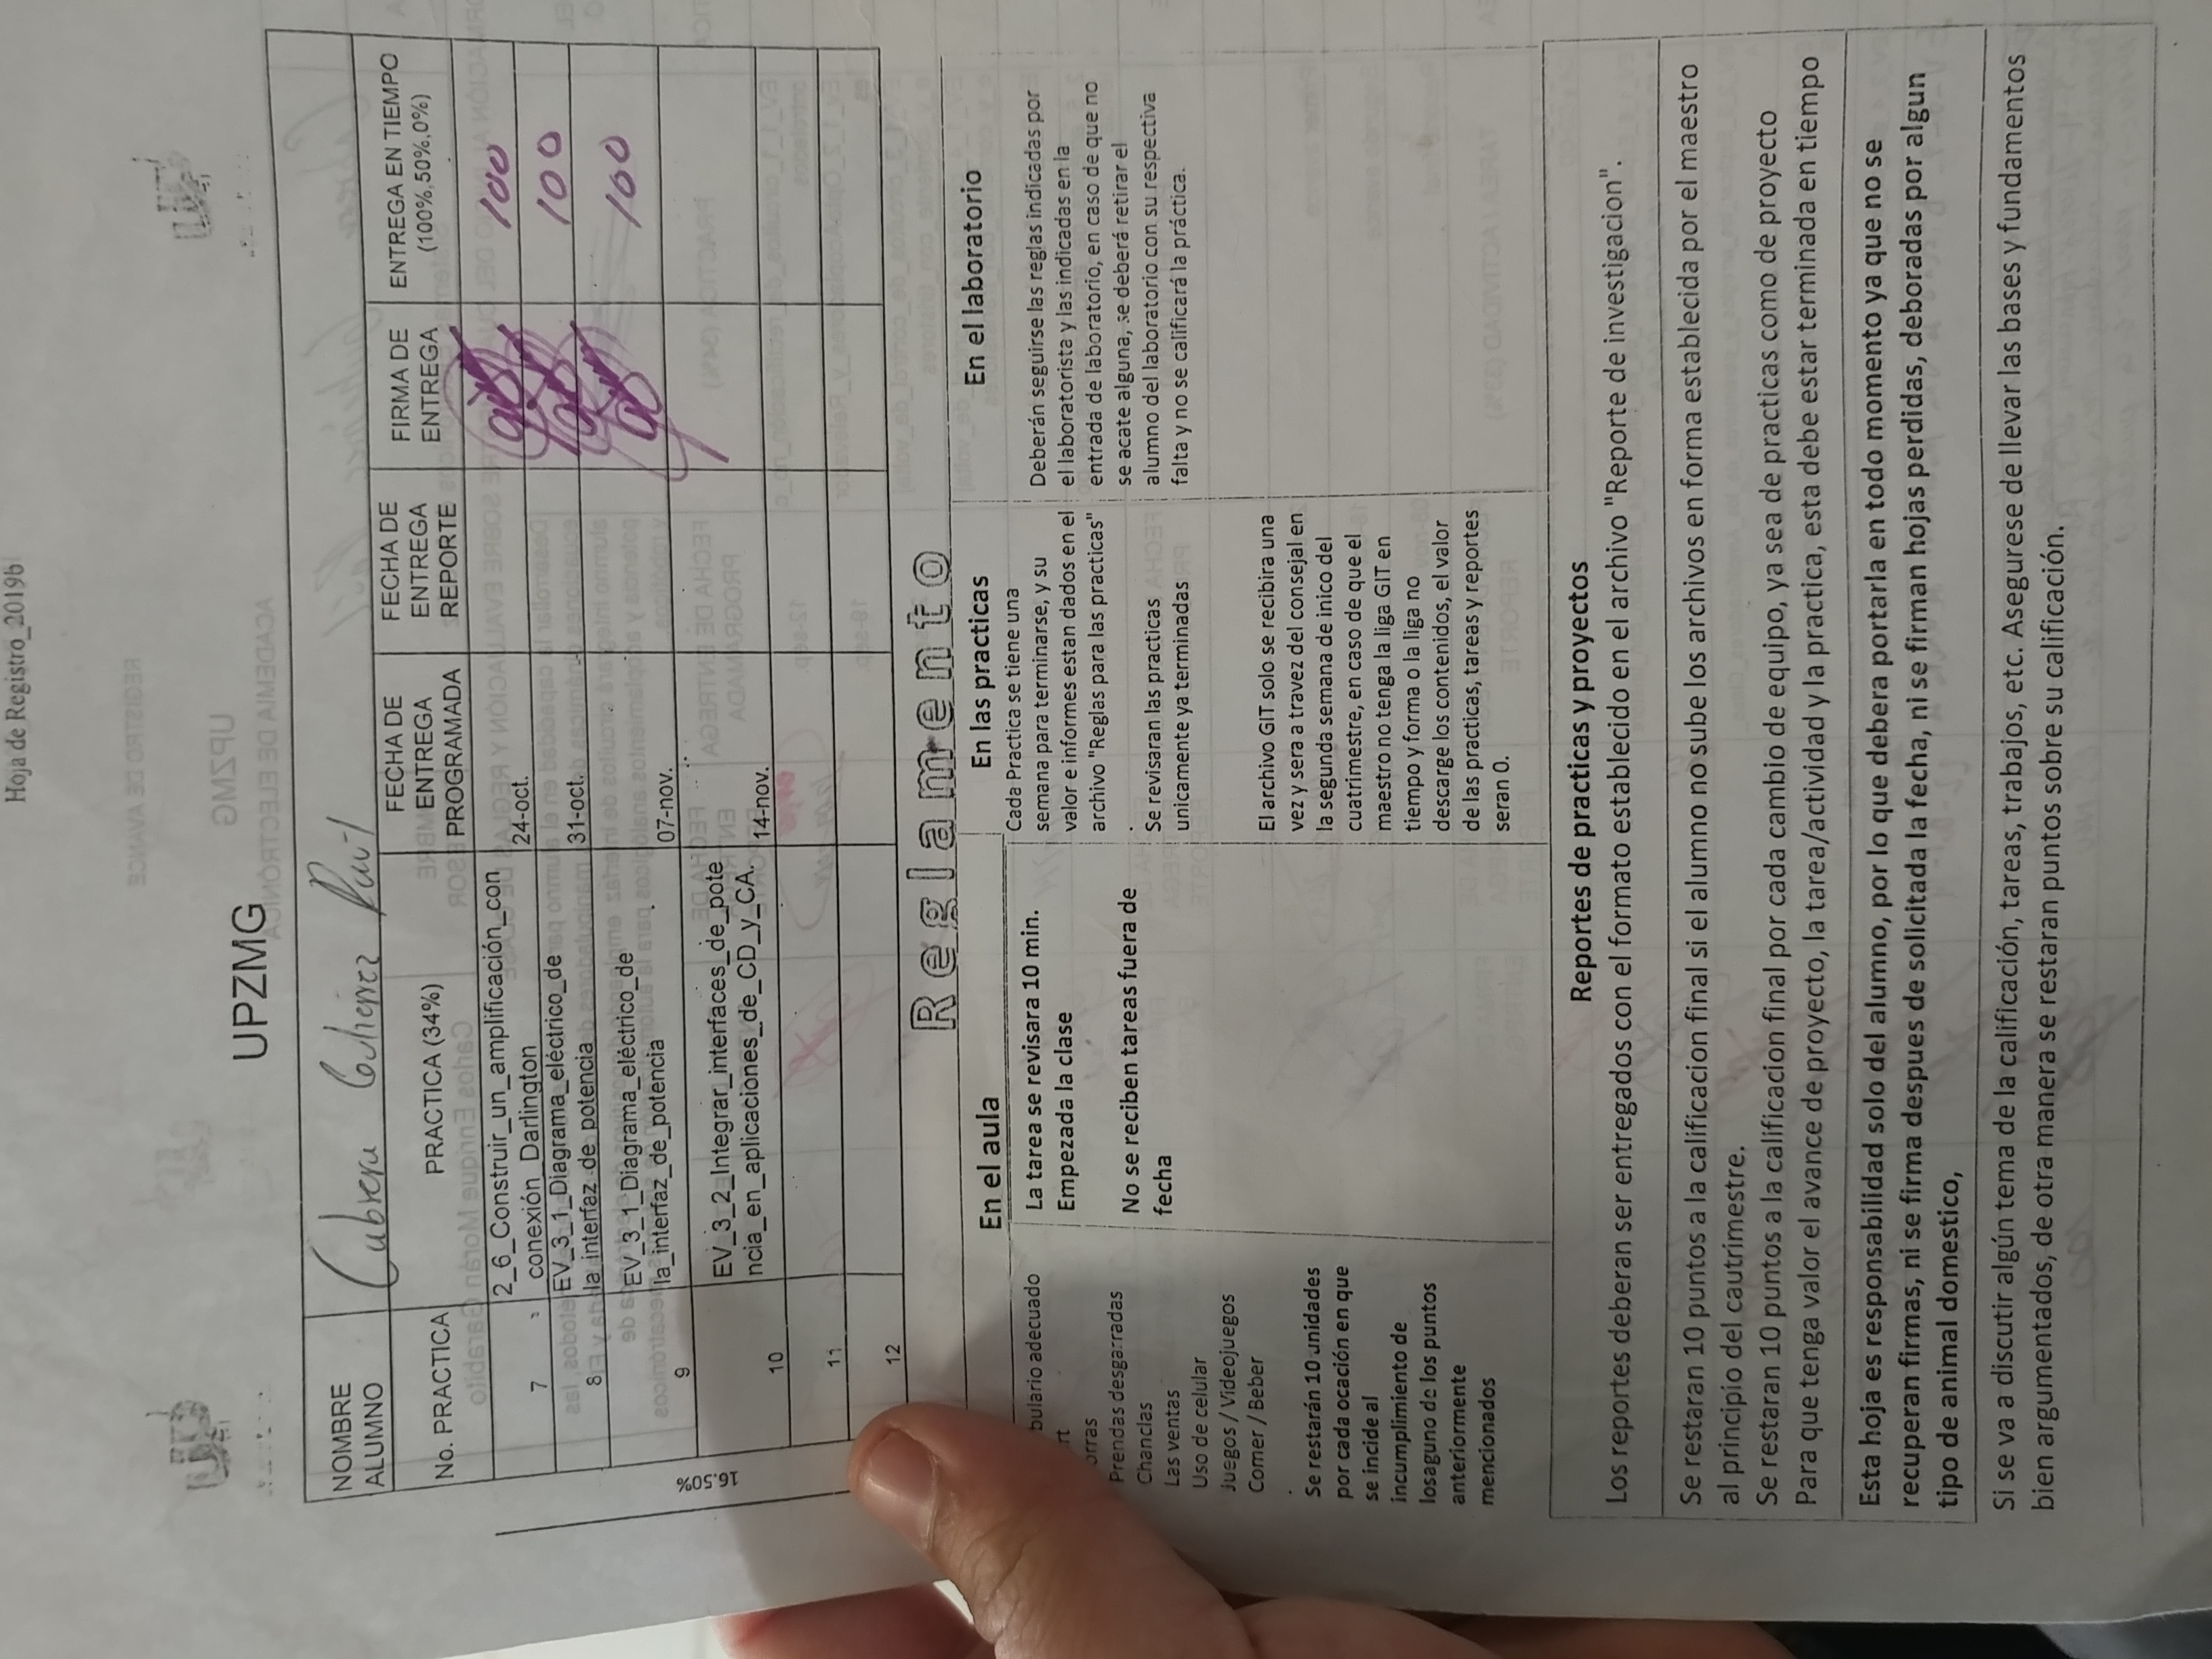 Hoja de Registro_2019b
UPZMG
NOMBRE
ALUMNO
Cabrera Gutierrez Raul
No. PRACTICA
PRACTICA (34%)
FECHA DE
ENTREGA
PROGRAMADA
FECHA DE
ENTREGA
REPORTE
FIRMA DE
ENTREGA
ENTREGA EN TIEMPO
(100%,50%,0%)
16.50%
7
2_6_Construir_un_amplificación_con
conexión_Darlington
24-oct.
100
8
EV_3_1_Diagrama_eléctrico_de
la_interfaz_de_potencia
31-oct.
100
9
EV_3_1_Diagrama_eléctrico_de
la_interfaz_de_potencia
07-nov.
100
10
EV_3_2_Integrar_interfaces_de_pote
ncia_en_aplicaciones_de_CD_y_CA.
14-nov.
11
12
Reglamento
En el aula
bulario adecuado
rt
orras
Prendas desgarradas
Chanclas
Las ventas
Uso de celular
Juegos / Videojuegos
Comer / Beber
.
Se restarán 10 unidades
por cada ocación en que
se incide al
incumplimiento de
losaguno de los puntos
anteriormente
mencionados
La tarea se revisara 10 min.
Empezada la clase
No se reciben tareas fuera de
fecha
En las practicas
Cada Practica se tiene una
semana para terminarse, y su
valor e informes estan dados en el
archivo "Reglas para las practicas"
.
Se revisaran las practicas
unicamente ya terminadas
El archivo GIT solo se recibira una
vez y sera a travez del consejal en
la segunda semana de inico del
cuatrimestre, en caso de que el
maestro no tenga la liga GIT en
tiempo y forma o la liga no
descarge los contenidos, el valor
de las practicas, tareas y reportes
seran 0.
En el laboratorio
Deberán seguirse las reglas indicadas por
el laboratorista y las indicadas en la
entrada de laboratorio, en caso de que no
se acate alguna, se deberá retirar el
alumno del laboratorio con su respectiva
falta y no se calificará la práctica.
Reportes de practicas y proyectos
Los reportes deberan ser entregados con el formato establecido en el archivo "Reporte de investigacion".
Se restaran 10 puntos a la calificacion final si el alumno no sube los archivos en forma establecida por el maestro
al principio del cautrimestre.
Se restaran 10 puntos a la calificacion final por cada cambio de equipo, ya sea de practicas como de proyecto
Para que tenga valor el avance de proyecto, la tarea/actividad y la practica, esta debe estar terminada en tiempo
Esta hoja es responsabilidad solo del alumno, por lo que debera portarla en todo momento ya que no se
recuperan firmas, ni se firma despues de solicitada la fecha, ni se firman hojas perdidas, deboradas por algun
tipo de animal domestico,
Si se va a discutir algún tema de la calificación, tareas, trabajos, etc. Asegurese de llevar las bases y fundamentos
bien argumentados, de otra manera se restaran puntos sobre su calificación.